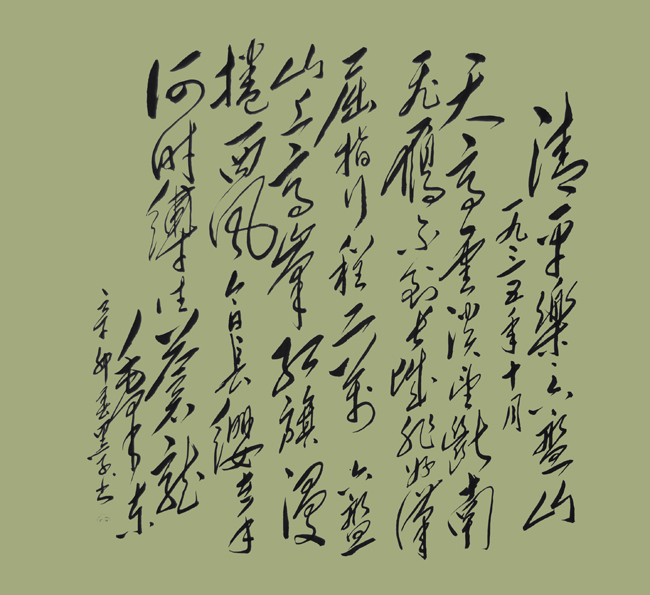 清平樂六盤山
一九三五年十月
天高雲淡望斷南
飛雁不到長城非好漢
屈指行程二萬六盤
山上高峯紅旗漫
捲西風今日長纓在手
何時縛住蒼龍
毛澤東
辛卯春